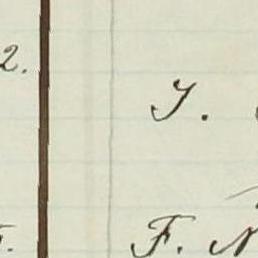 2.
J.
F. N